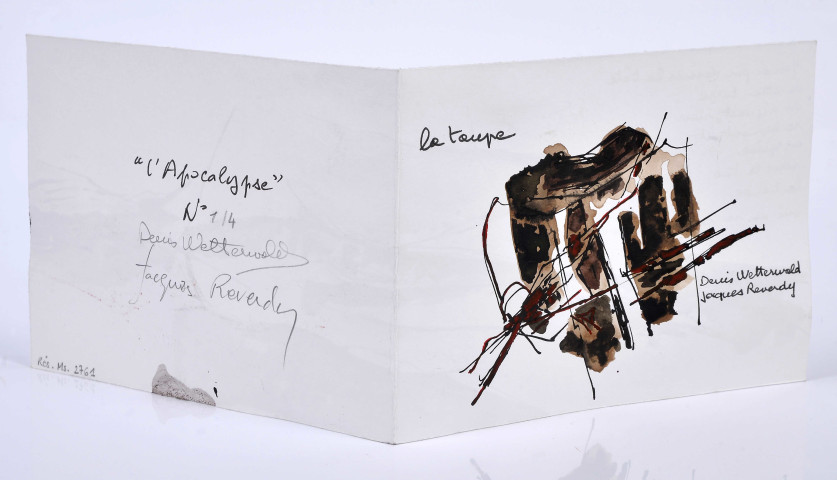 "l'Apocalypse"
N° 1/4
Denis Wetterwald
Jacques Reverdy
Rés. Ms. 2761
la taupe
Denis Wetterwald
Jacques Reverdy